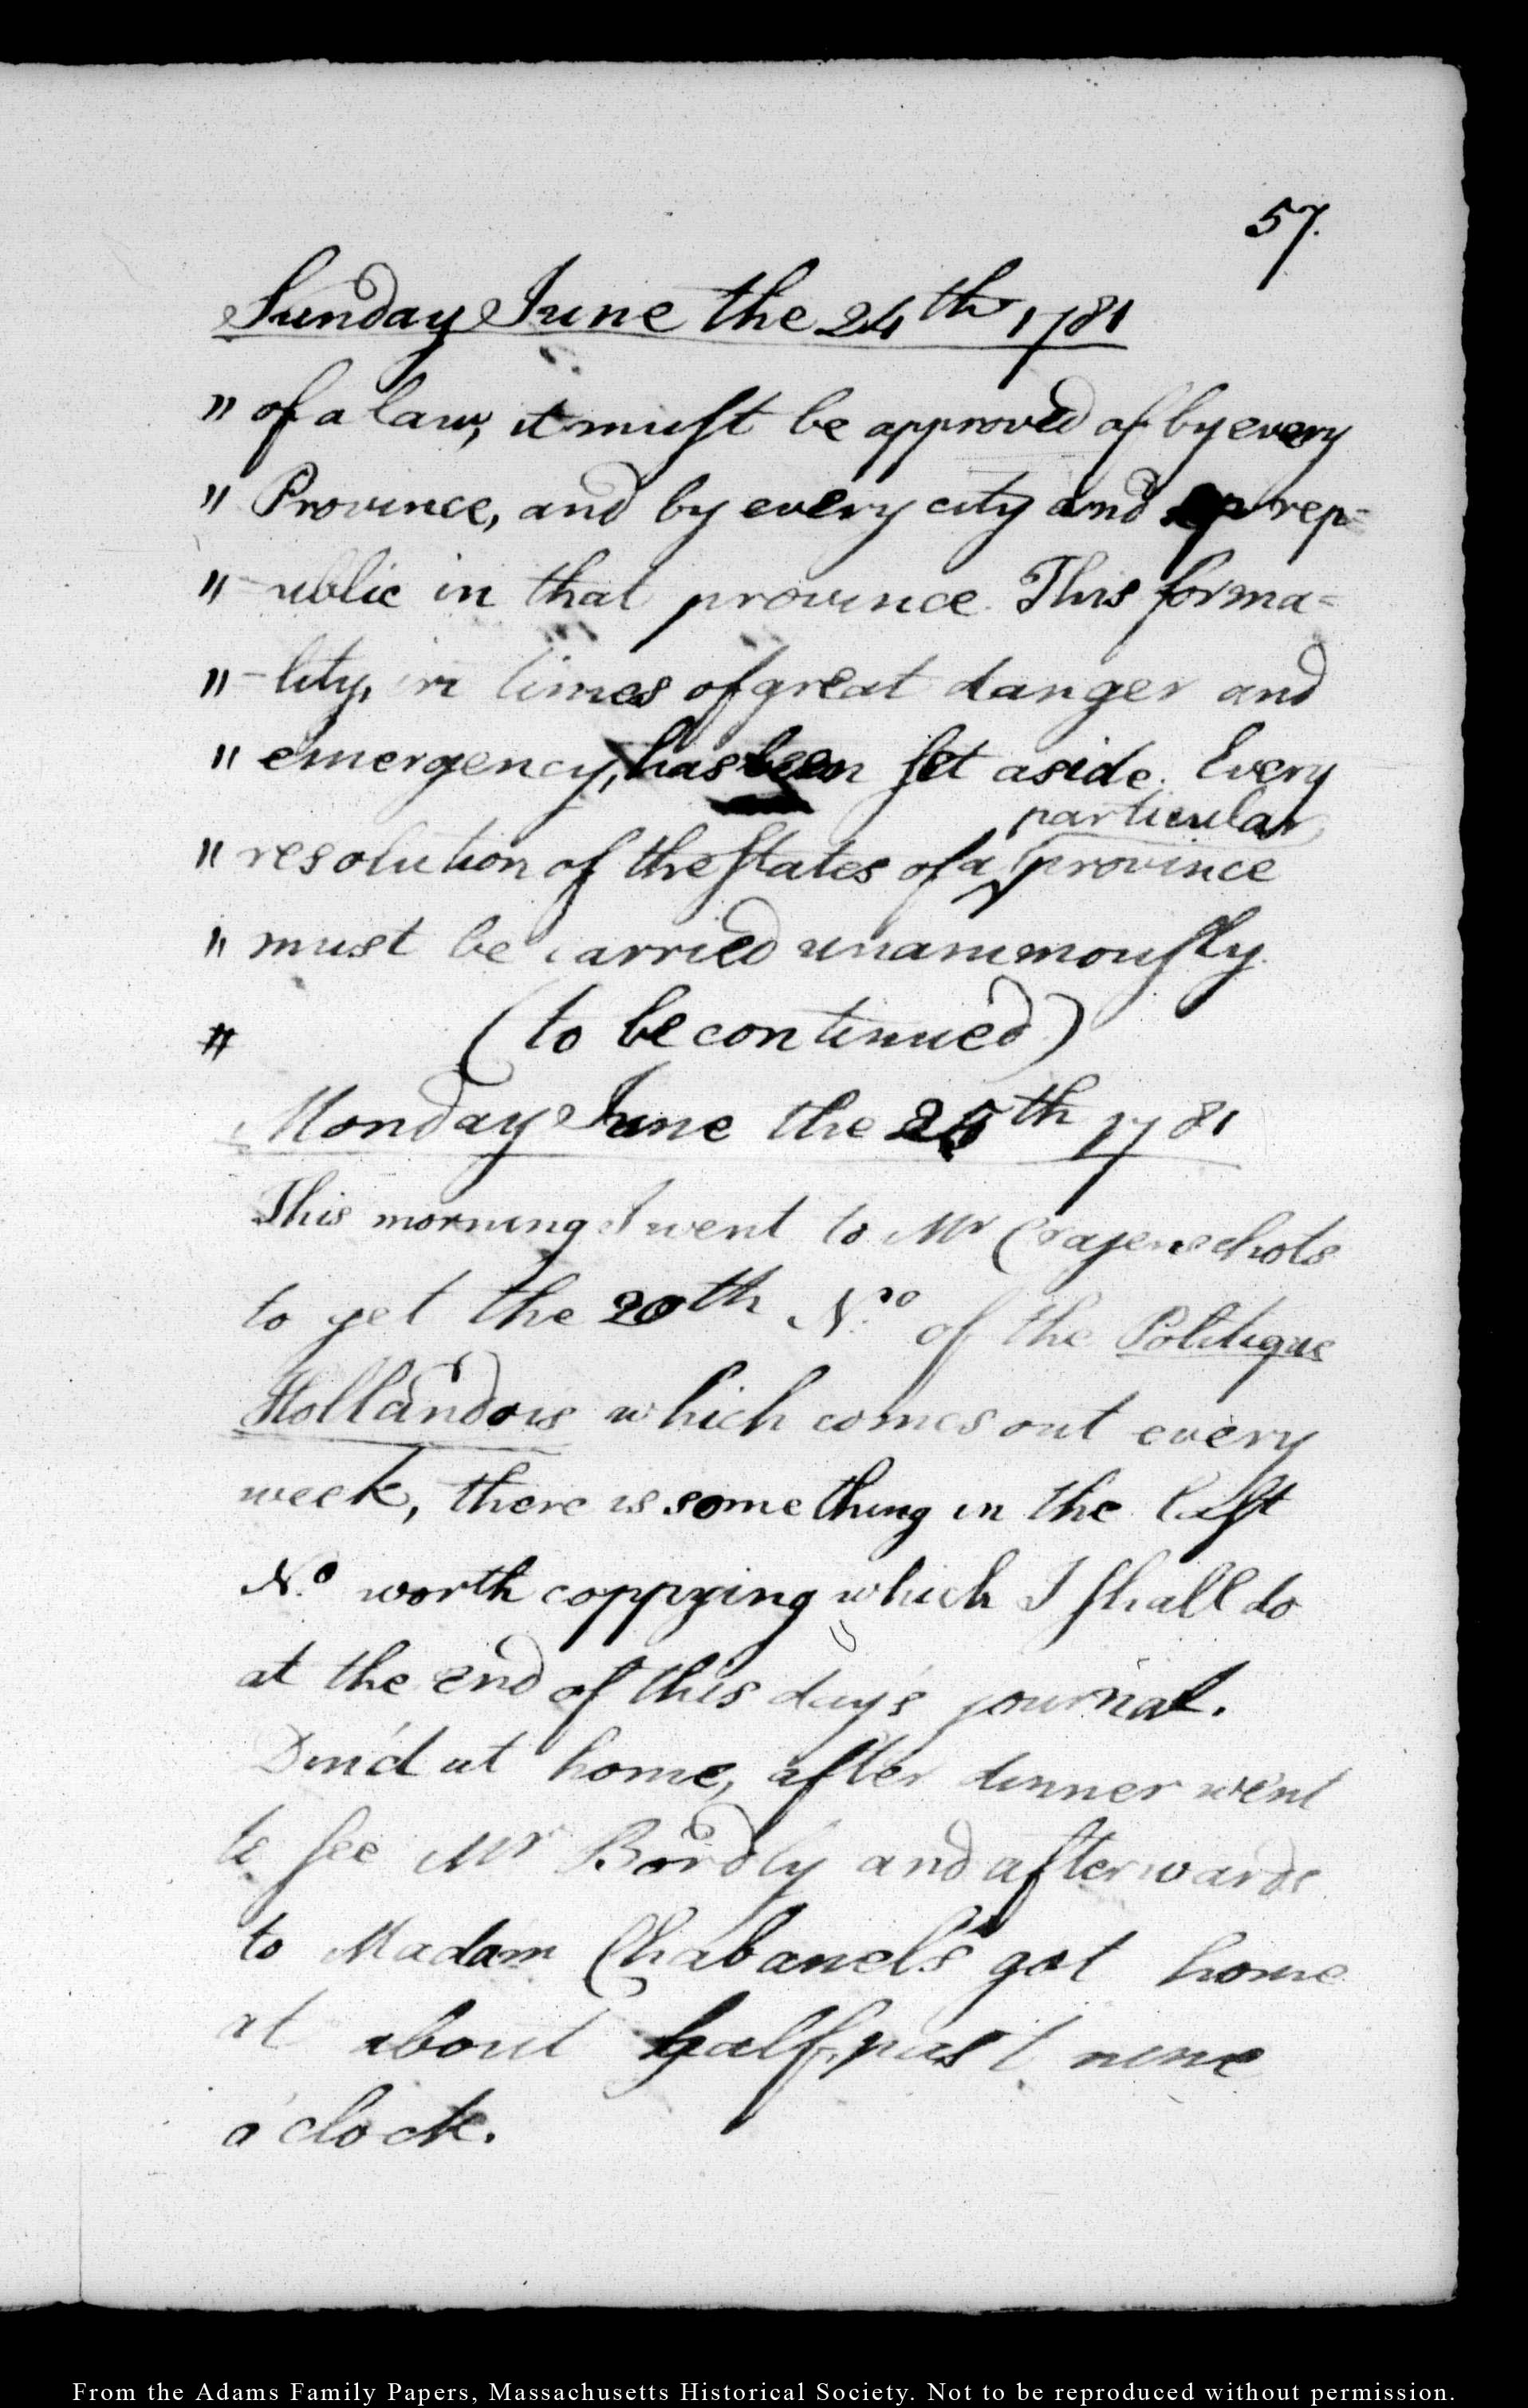 57.
Sunday June the 24th 1781
" of a law, it must be approved of by every
" Province, and by every city and rep=
" -ublic in that province. This forma=
" -lity, in times of great danger and
" emergency, has been set aside. Every
particular
" resolution of the States of a province
" must be carried unanimously.
" (to be continued)
Monday June the 25th 1781
This morning I went to Mr Crajenschots
to get the 20th No. of the Politique
Hollandois which comes out every
week, there is something in the last
No. worth coppying which I shall do
at the end of this day's journal.
Din'd at home, after dinner went
to see Mr Bordly and afterwards
to Madam Chabanel's got home
at about half past nine
o'clock.
From the Adams Family Papers, Massachusetts Historical Society. Not to be reproduced without permission.